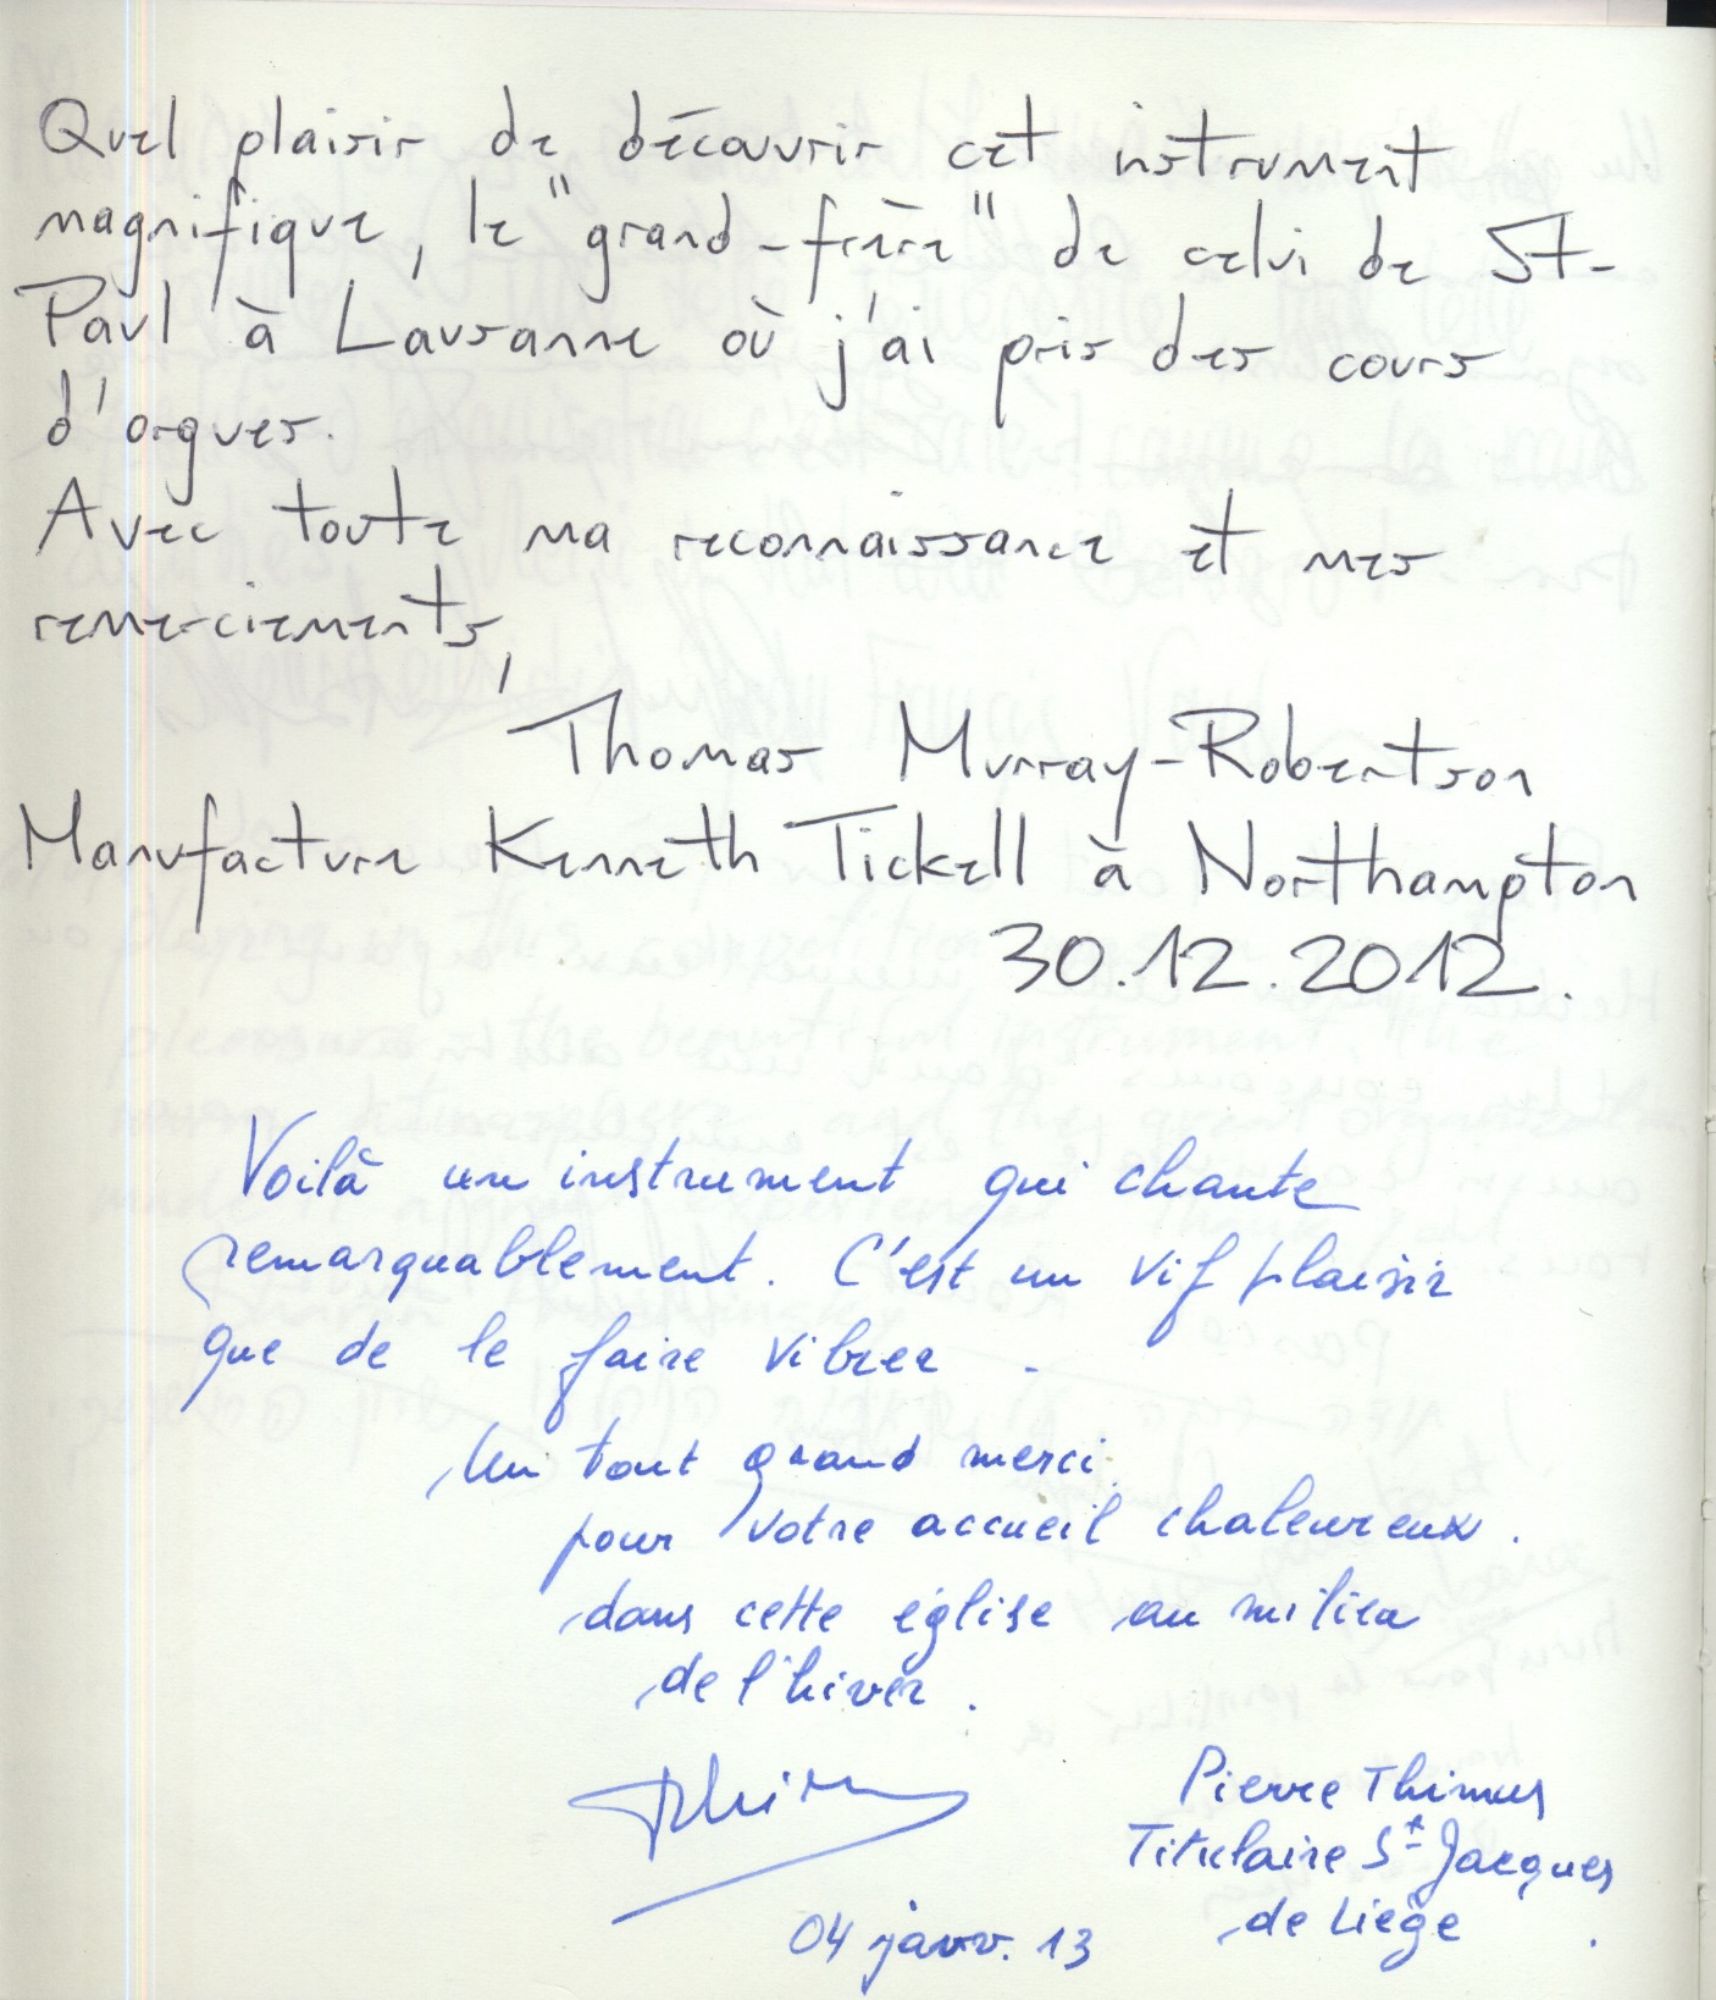 Quel plaisir de découvrir cet instrument
magnifique, le "grand-frère" de celui de St-
Paul à Lausanne où j'ai pris des cours
d'orgues.
Avec toute ma reconnaissance et mes
remerciements,
Thomas Murray-Robertson
Manufacture Kenneth Tickell à Northampton
30.12.2012.
Voilà un instrument qui chante
remarquablement. C'est un vif plaisir
que de le faire vibrer.
Un tout grand merci
pour votre accueil chaleureux.
dans cette église au milieu
de l'hiver.
Pierre Thimus
Titulaire St Jacques
de Liège.
04 janv. 13